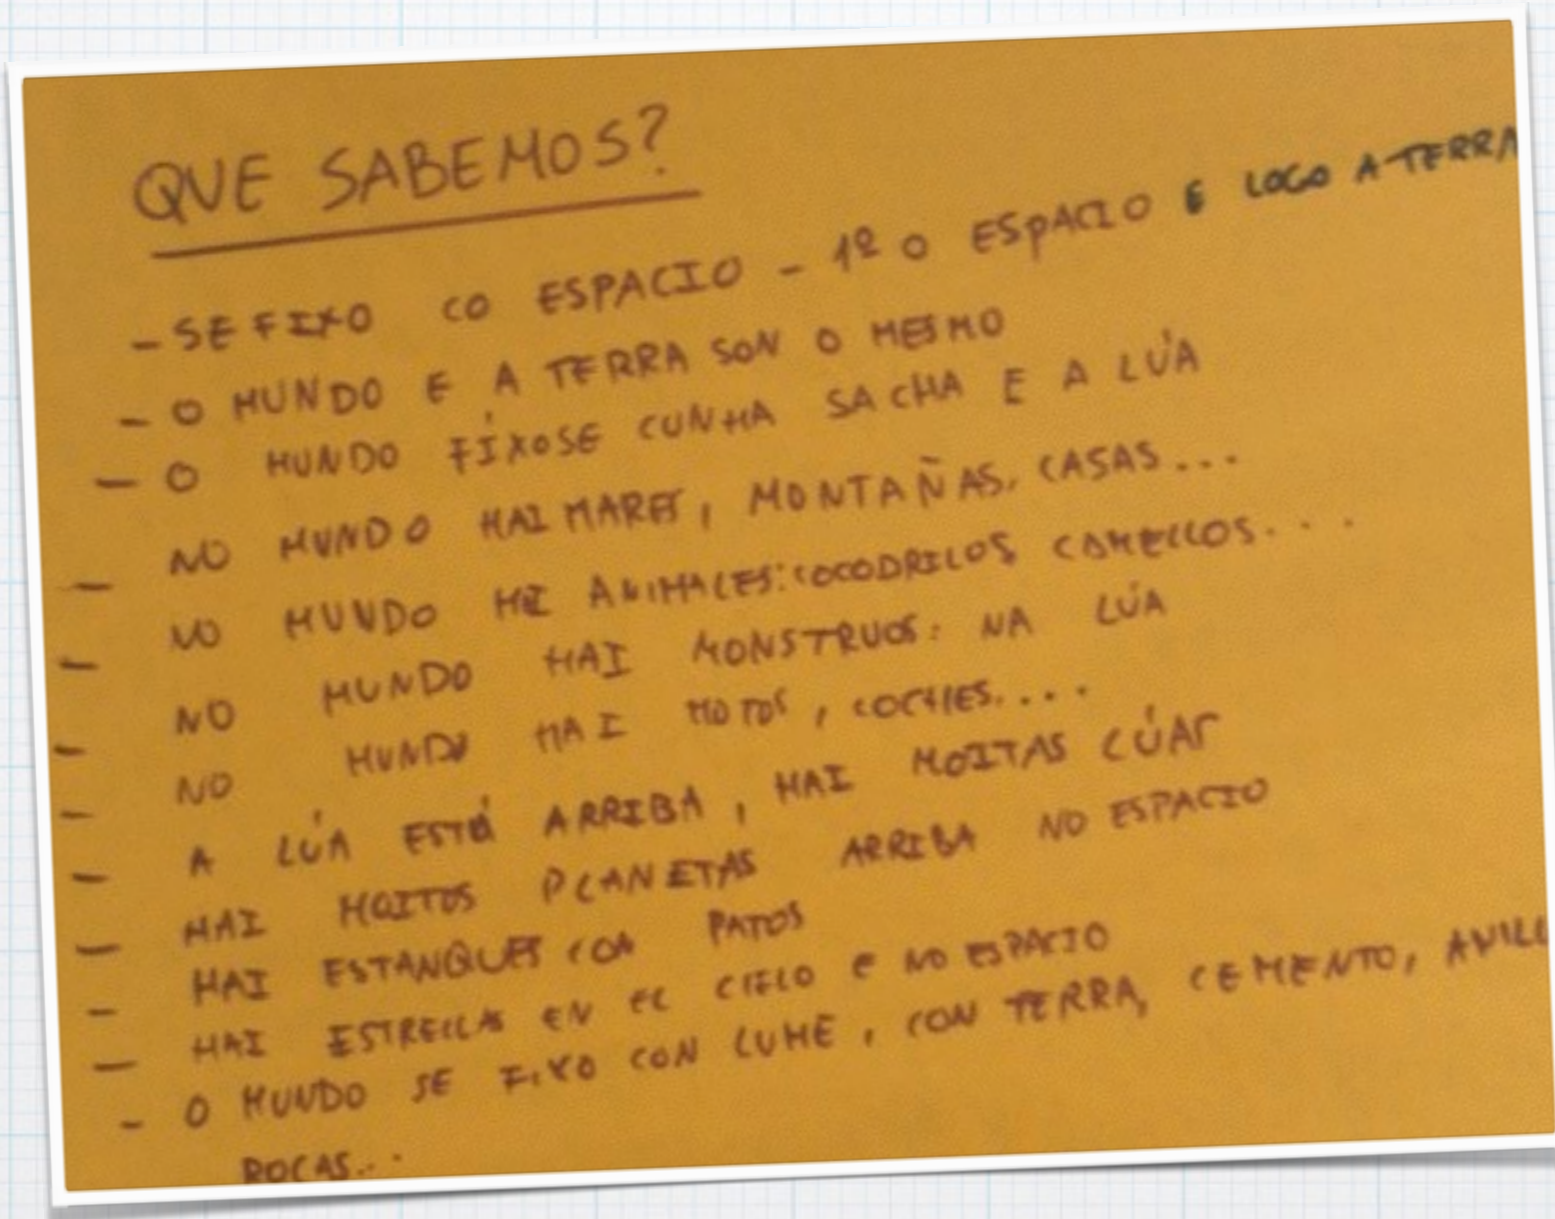 QUE SABEMOS?
- SE FIXO CO ESPACIO - 1º O ESPACIO E LOGO A TERRA
- O MUNDO E A TERRA SON O MESMO
- O MUNDO FÍXOSE CUNHA SACHA E A LÚA
- NO MUNDO HAI MARES, MONTAÑAS, CASAS...
- NO MUNDO HAI ANIMALES: COCODRILOS CAMELLOS....
- NO MUNDO HAI MONSTRUOS: NA LÚA
- NO MUNDO HAI MOTOS, COCHES....
- A LÚA ESTÁ ARRIBA, HAI MOITAS LÚAS
- HAI MOITOS PLANETAS ARRIBA NO ESPACIO
- HAI ESTANQUES CON PATOS
- HAI ESTRELLAS EN EL CIELO E NO ESPACIO
- O MUNDO SE FIXO CON LUME, CON TERRA, CEMENTO,
ROCAS...